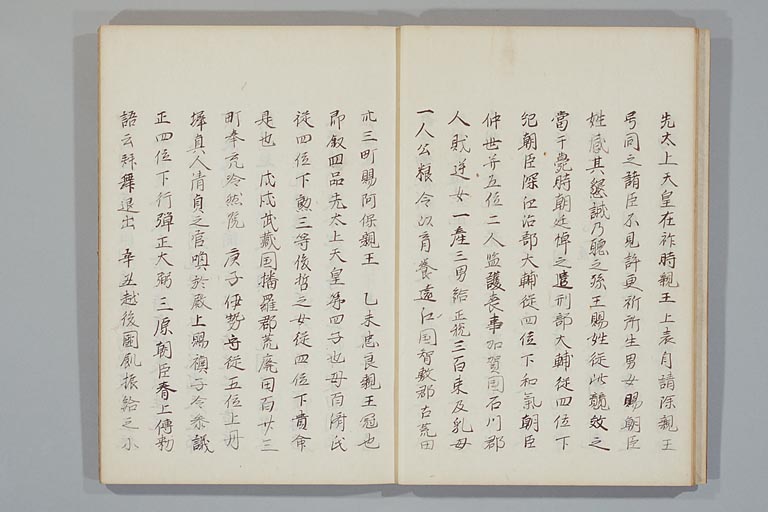 先太上天皇在祚時親王上表自請除親王
号同之諸臣不見許更祈所生男女賜朝臣
姓感其懇誠乃聴之孫王賜姓従此競效之
當于薨時朝廷悼之遣刑部大輔従四位下
紀朝臣深江治部大輔従四位下和氣朝臣
仲世等五位二人監護喪事加賀国石川郡
人財逆女一産三男給正税三百束及乳母
一人公粮令以育養遠江国智敷郡古荒田
卌三町賜阿保親王 乙未忠良親王冠也
即叙四品先太上天皇第四子也母百濟氏
従四位下勲三等俊哲之女従四位下貴命
是也 戊戌武蔵国播羅郡荒廃田百廿三
町奉充冷然院 庚子伊勢守従五位上丹
墀真人清貞之官喚於殿上賜禄子令参議
正四位下行弾正大弼三原朝臣春上傳勅
語云舞退出 辛丑越後國飢振給之水